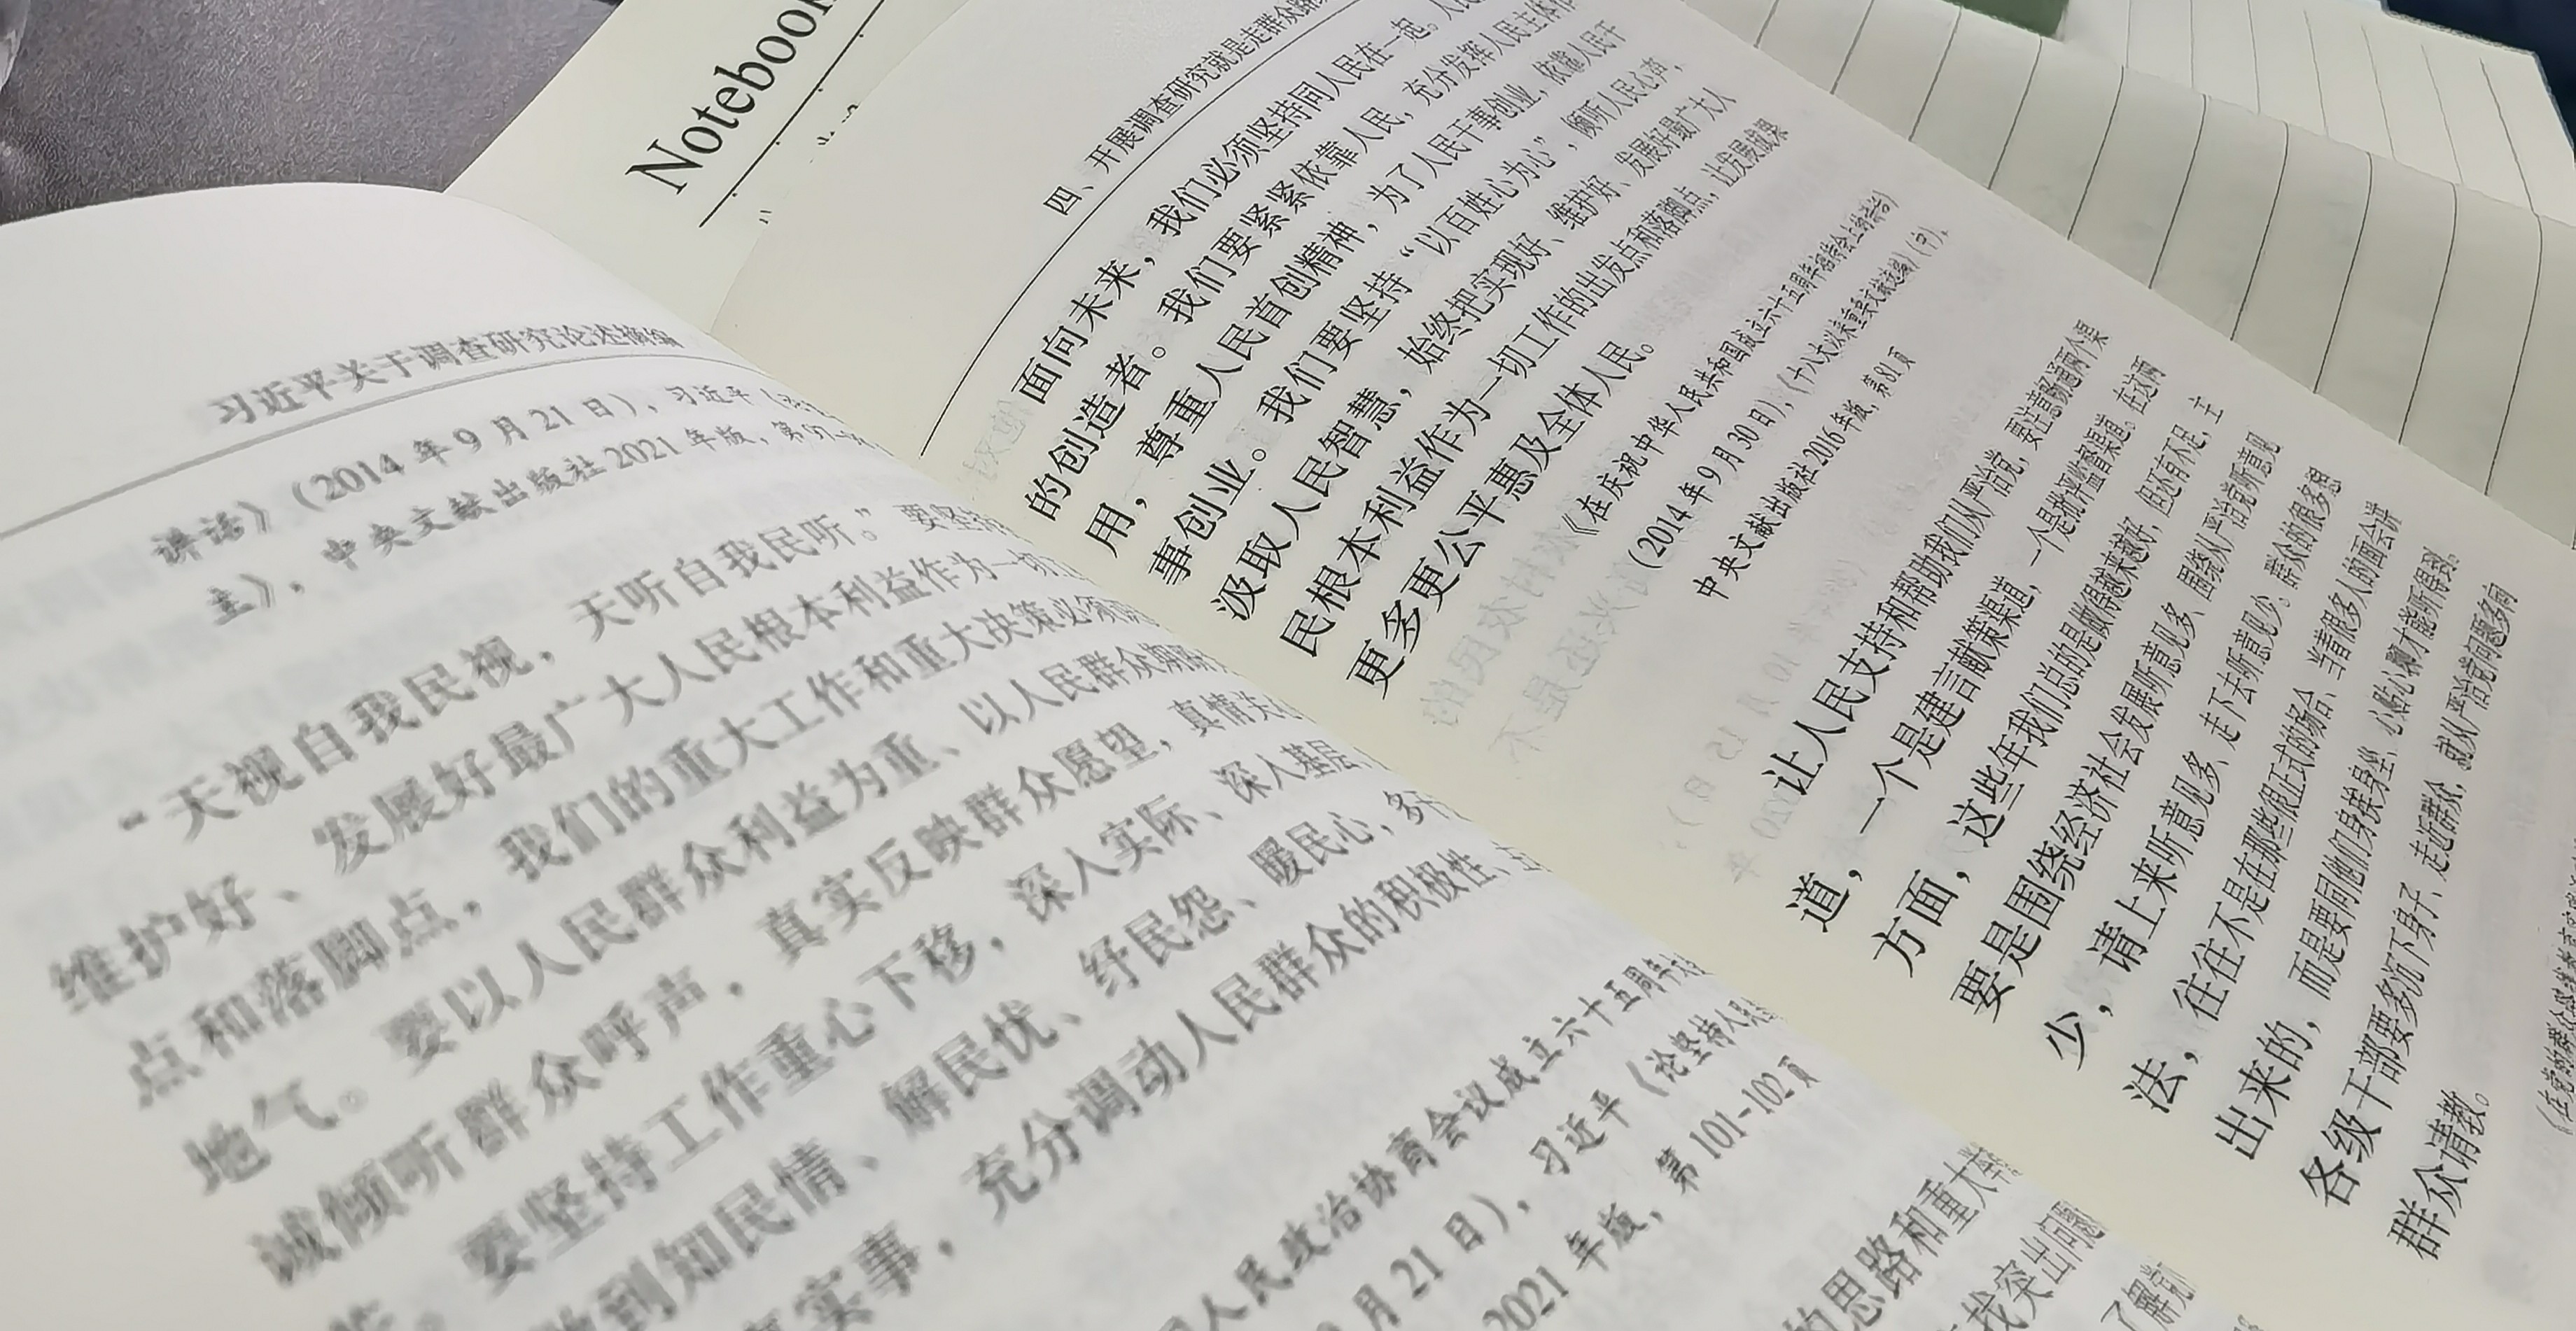 Notebook
习近平关于调查研究论述摘编
讲话》（2014年9月21日），习近平《
主》，中央文献出版社2021年版，第97
“天视自我民视，天听自我民听。”要坚持
维护好、发展好最广大人民根本利益作为一切
点和落脚点，我们的重大工作和重大决策必须
地气。要以人民群众利益为重、以人民群众期盼
诚倾听群众呼声，真实反映群众愿望，真情关心
要坚持工作重心下移，深入实际、深入基层、
做到知民情、解民忧、纾民怨、暖民心，多
实事，充分调动人民群众的积极性、主
人民政治协商会议成立六十五周年大
月21日），习近平《论坚持人民
2021年版，第101-102页
的思路和重大举
找突出问题
了解
四、开展调查研究就是走群众路
面向未来，我们必须坚持同人民在一起。人民
的创造者。我们要紧紧依靠人民，充分发挥人民主体作
用，尊重人民首创精神，为了人民干事创业，依靠人民干
事创业。我们要坚持“以百姓心为心”，倾听人民心声，
汲取人民智慧，始终把实现好、维护好、发展好最广大人
民根本利益作为一切工作的出发点和落脚点，让发展成果
更多更公平惠及全体人民。
《在庆祝中华人民共和国成立六十五周年招待会上的讲话》
（2014年9月30日），《十八大以来重要文献选编》（中），
中央文献出版社2016年版，第81页
让人民支持和帮助我们从严治党，要注意畅通两个渠
道，一个是建言献策渠道，一个是批评监督渠道。在这两
方面，这些年我们总的是做得越来越好，但还有不足，主
要是围绕经济社会发展听意见多、围绕从严治党听意见
少，请上来听意见多、走下去听意见少。群众的很多想
法，往往不是在那些很正式的场合、当着很多人的面会讲
出来的，而是要同他们身挨身坐、心贴心聊才能听得到。
各级干部要多沉下身子、走近群众，就从严治党问题多向
群众请教。